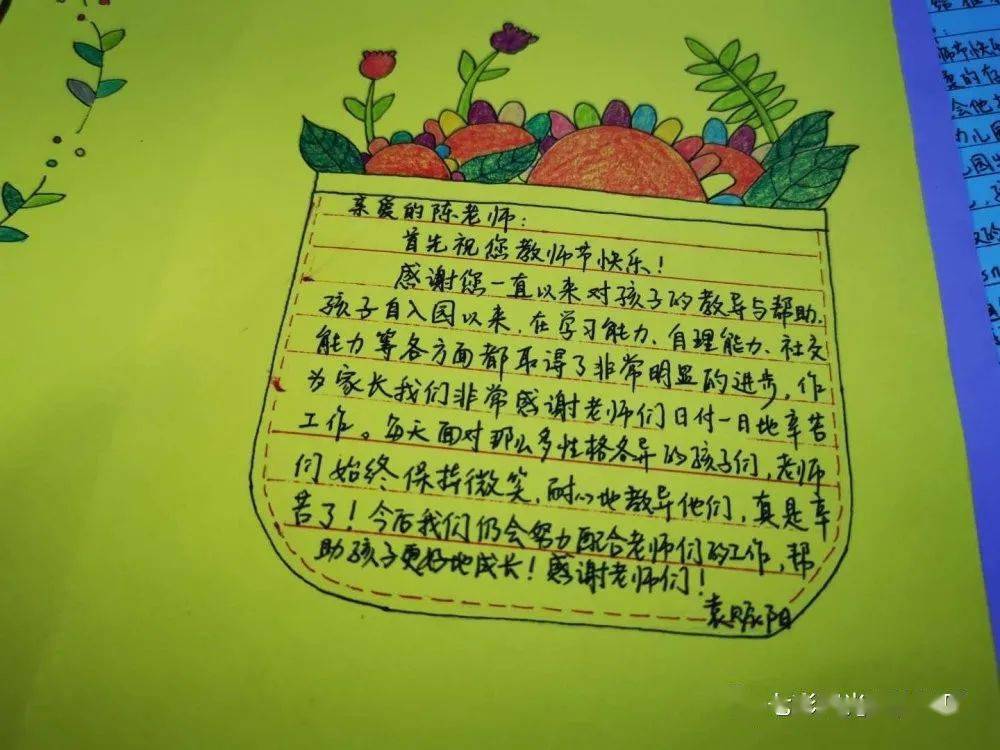 亲爱的陈老师:
首先祝您教师节快乐!
感谢您一直以来对孩子的教导与帮助.
孩子自入园以来,在学习能力、自理能力、社交
能力等各方面都取得了非常明显的进步,作
为家长我们非常感谢老师们日付一日地辛苦
工作。每天面对那么多性格各异的孩子们,老师
们始终保持微笑,耐心地教导他们,真是辛
苦了!今后我们仍会努力配合老师们的工作,帮
助孩子更好地成长!感谢老师们!
师节快